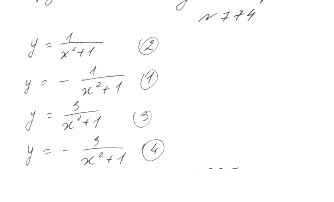 № 774
y = 1/(x²+1) ②
y = - 1/(x²+1) ①
y = 3/(x²+1) ③
y = - 3/(x²+1) ④